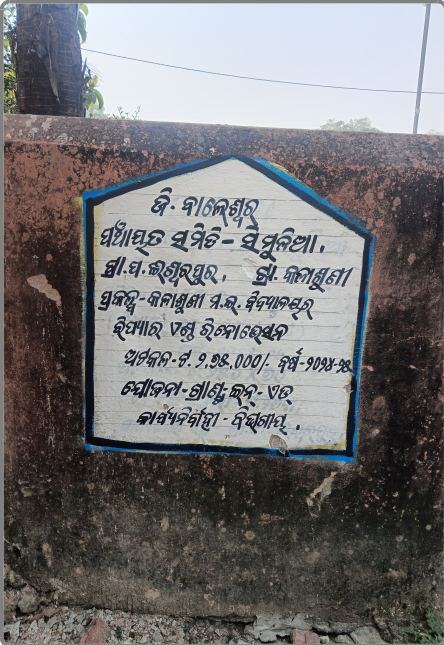 ଜି. ବାଲେଶ୍ୱର
ପଞ୍ଚାୟତ ସମିତି - ସିମୁଳିଆ.
ଗ୍ରା.ପ. ଈଶ୍ୱରପୁର. ଗ୍ରା. କଳାଶୁଣୀ
ପ୍ରକଳ୍ପ - କଳାଶୁଣୀ ମ.ଇ. ବିଦ୍ୟାଳୟର
ରିପ୍ୟାର ଏଣ୍ଡ ରିନୋଭେସନ
ଅଟକଳ - ଟ. ୨,୭୫,000/. ବର୍ଷ - ୨୦୨୪-୨୫
ଯୋଜନା - ଗ୍ରାଣ୍ଟ ଇନ୍ - ଏଡ୍
କାର୍ଯ୍ୟନିର୍ବାହୀ - ବିଭାଗୀୟ.